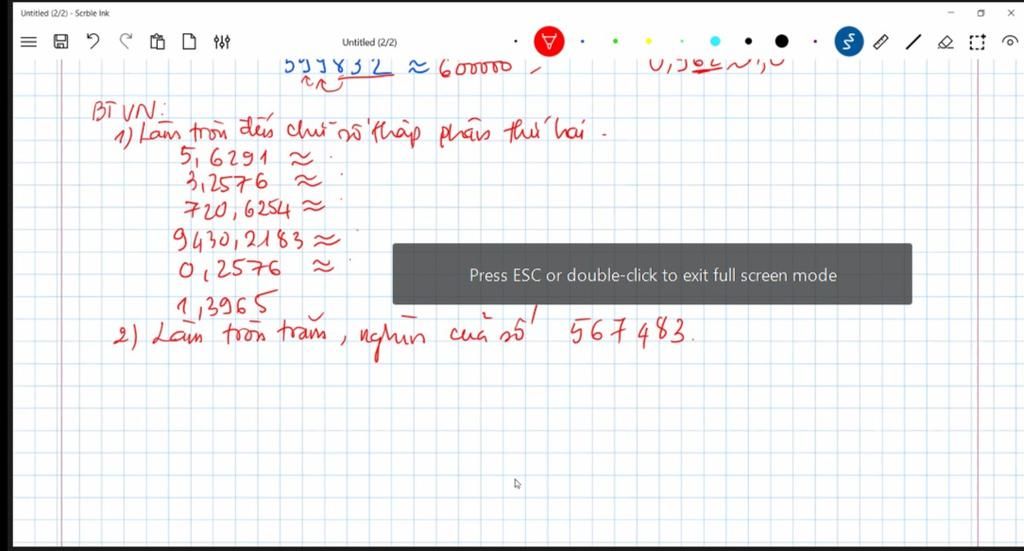 Untitled (2/2) - Scrble Ink
Untitled (2/2)
599832 ≈ 600000
BTVN:
1) Làm tròn đến chữ số thập phân thứ hai.
5,6291 ≈
3,2576 ≈
720,6254 ≈
9430,2183 ≈
0,2576 ≈
Press ESC or double-click to exit full screen mode
1,3965
2) Làm tròn trăm, nghìn của số 567483.